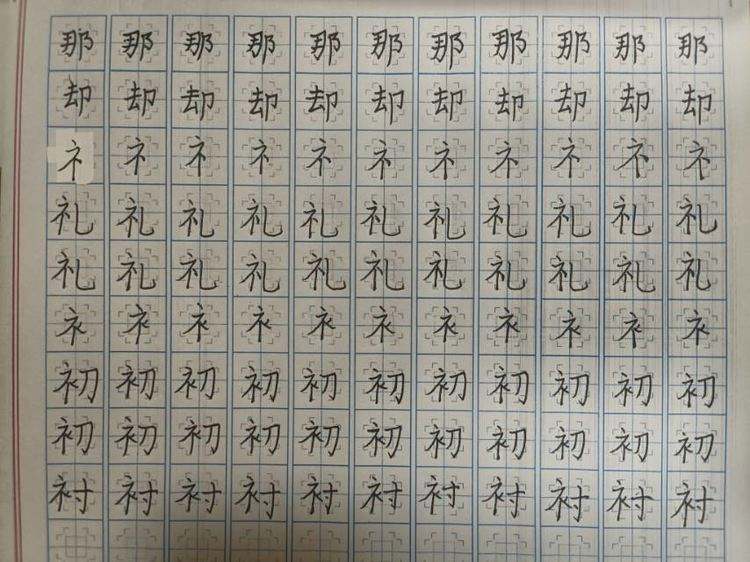 那那那那那那那那那那那
却却却却却却却却却却却
礻礻礻礻礻礻礻礻礻礻礻
礼礼礼礼礼礼礼礼礼礼礼
礼礼礼礼礼礼礼礼礼礼礼
衤衤衤衤衤衤衤衤衤衤衤
初初初初初初初初初初初
初初初初初初初初初初初
衬衬衬衬衬衬衬衬衬衬衬